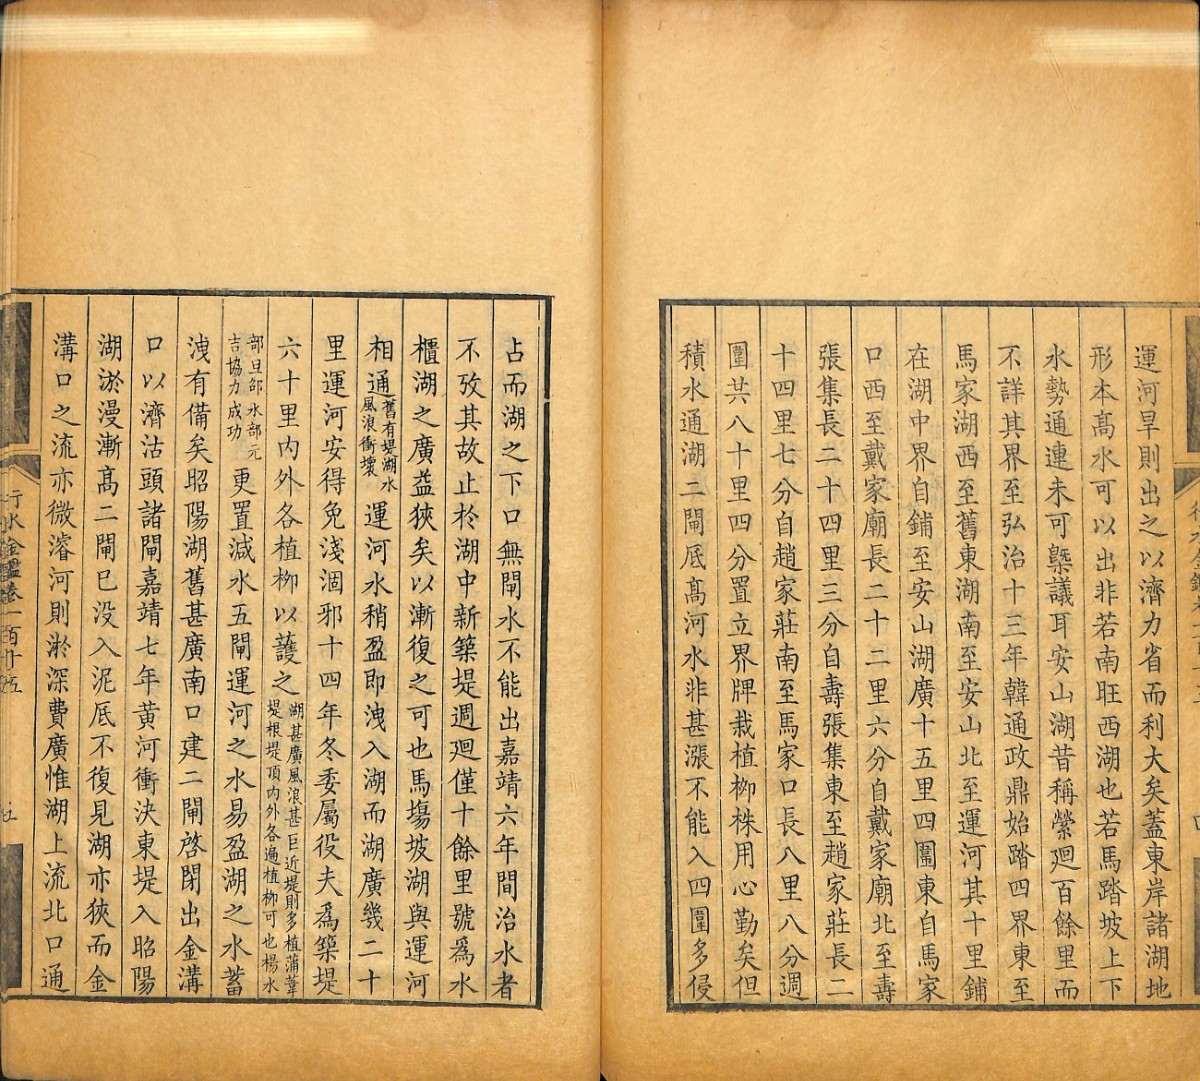 運河旱則出之以濟力省而利大矣蓋東岸諸湖地
形本髙水可以出非若南旺西湖也若馬踏坡上下
水勢通連未可槩議耳安山湖昔稱縈廻百餘里而
不詳其界至弘治十三年韓通政鼎始踏四界東至
馬家湖西至舊東湖南至安山北至運河其十里鋪
在湖中界自鋪至安山湖廣十五里四圍東自馬家
口西至戴家廟長二十二里六分自戴家廟北至壽
張集長二十四里三分自壽張集東至趙家莊長二
十四里七分自趙家莊南至馬家口長八里八分週
圍共八十里四分置立界牌栽植柳株用心勤矣但
積水通湖二閘底髙河水非甚漲不能入四圍多侵
占而湖之下口無閘水不能出嘉靖六年間治水者
不攷其故止於湖中新築堤週廻僅十餘里號爲水
櫃湖之廣益狹矣以漸復之可也馬塲坡湖與運河
相通舊有堤湖水風浪衝壞運河水稍盈即洩入湖而湖廣幾二十
里運河安得免淺涸邪十四年冬委屬役夫爲築堤
六十里内外各植柳以護之湖甚廣風浪甚巨近堤則多植蒲葦堤根堤頂内外各遍植柳可也楊水
部旦郃水部元吉協力成功更置減水五閘運河之水易盈湖之水蓄
洩有備矣昭陽湖舊甚廣南口建二閘啓閉出金溝
口以濟沽頭諸閘嘉靖七年黄河衝決東堤入昭陽
湖淤漫漸髙二閘已没入泥底不復見湖亦狹而金
溝口之流亦微濬河則淤深費廣惟湖上流北口通
行水金鑑卷一百十五
五